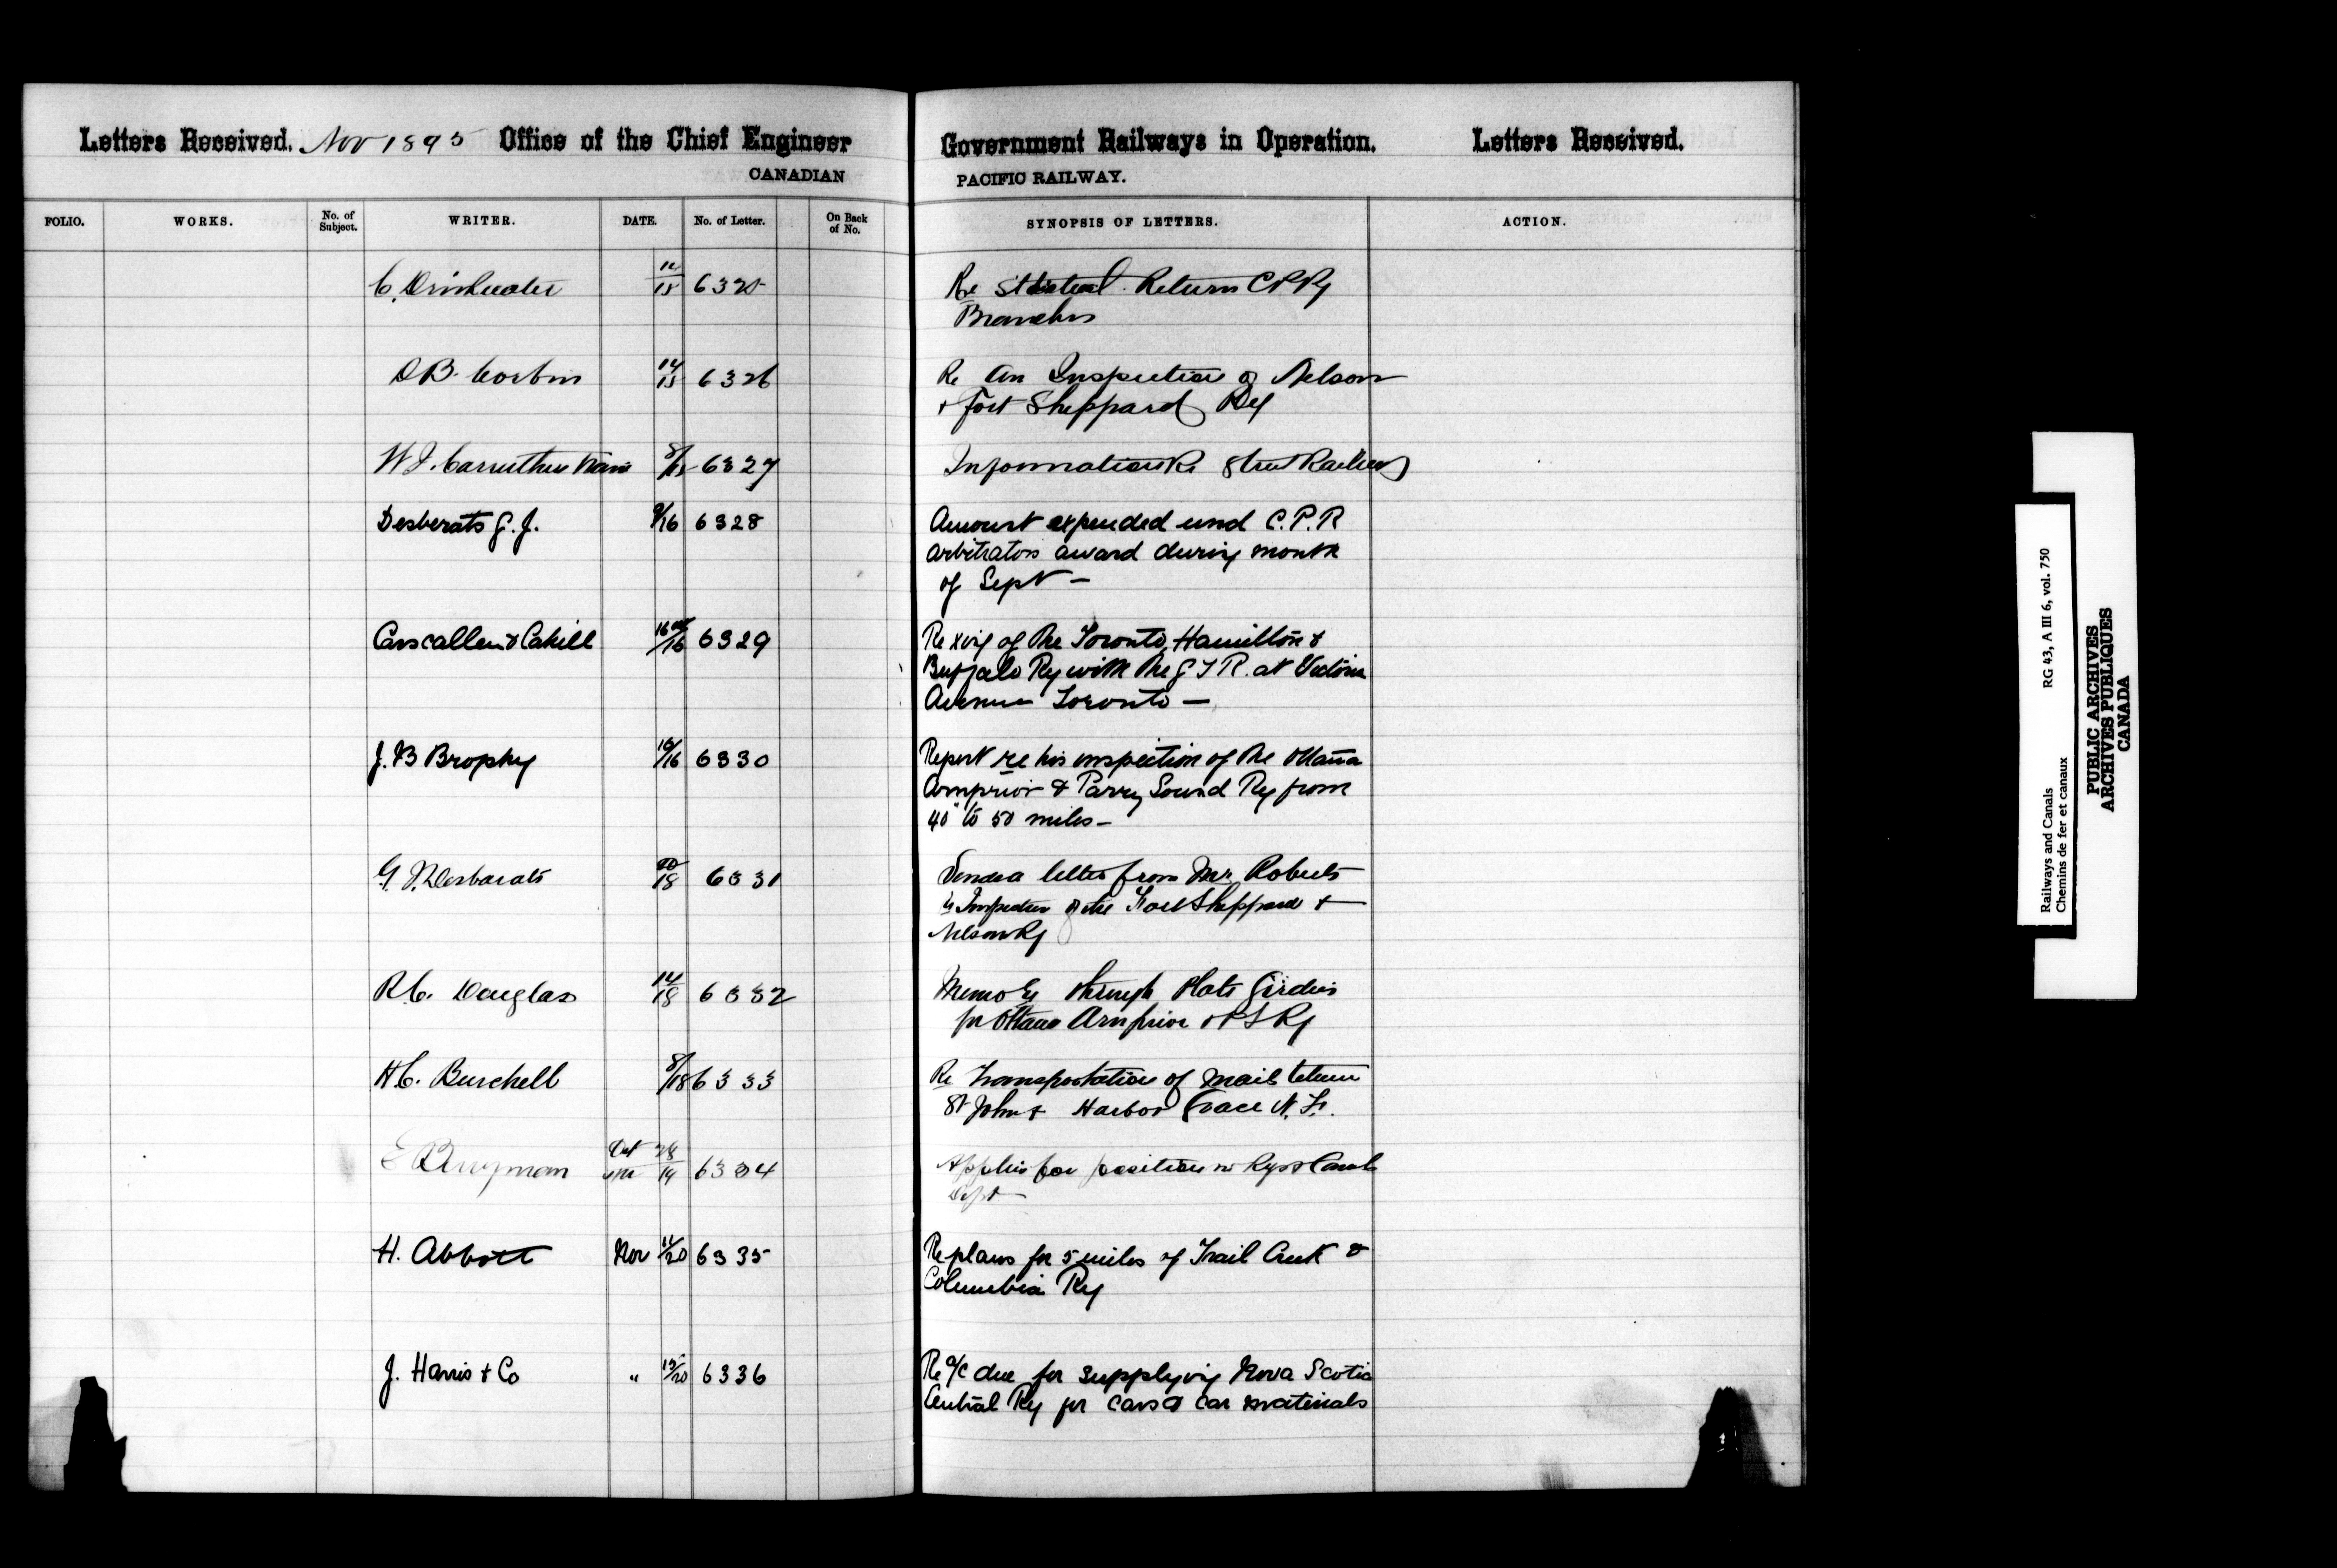 Letters Received. Nov 1895 Office of the Chief Engineer Government Railways in Operation. Letters Received.
CANADIAN PACIFIC RAILWAY.
FOLIO. WORKS. No. of Subject. WRITER. DATE. No. of Letter. On Back of No. SYNOPSIS OF LETTERS. ACTION.
C. Drinkwater 14/15 6325 Re Return C P Ry
Branches
D B. Corbin 14/15 6326 Re An Inspection of Nelson
& Fort Sheppard Ry
W J. Carruthers 8/15 6327 Information Re Street Railway
Desberats G. J. 9/16 6328 Amount expended und C.P.R
arbitrators award during month
of Sept —
Carscallen & Cahill 16/16 6329 Re xing of the Toronto, Hamilton &
Buffalo Ry with the G T R. at Victoria
Avenue Toronto —
J. B Brophy 16/16 6330 Report re his inspection of the Ottawa
Arnprior & Parry Sound Ry from
40 to 50 miles —
G. J. Desbarats /18 6331 Sends a letter from Mr Roberts
re Inspection of the Fort Sheppard &
Nelson Ry
R. C. Douglas 14/18 6332 Memo re through Plate Girders
for Ottawa Arnprior & P S Ry
H C. Burchell 8/18 6333 Re Transportation of Mails between
St Johns & Harbor Grace N. F.
Oct 28/19 6334 Applies for position in Rys & Canals
Dept
H. Abbott Nov 11/20 6335 Re plans for 5 miles of Trail Creek &
Columbia Ry
J. Harris & Co " 19/20 6336 Re a/c due for supplying Nova Scotia
Central Ry for cars & car materials
Railways and Canals RG 43, A III 6, vol. 750
Chemins de fer et canaux
PUBLIC ARCHIVES
ARCHIVES PUBLIQUES
CANADA